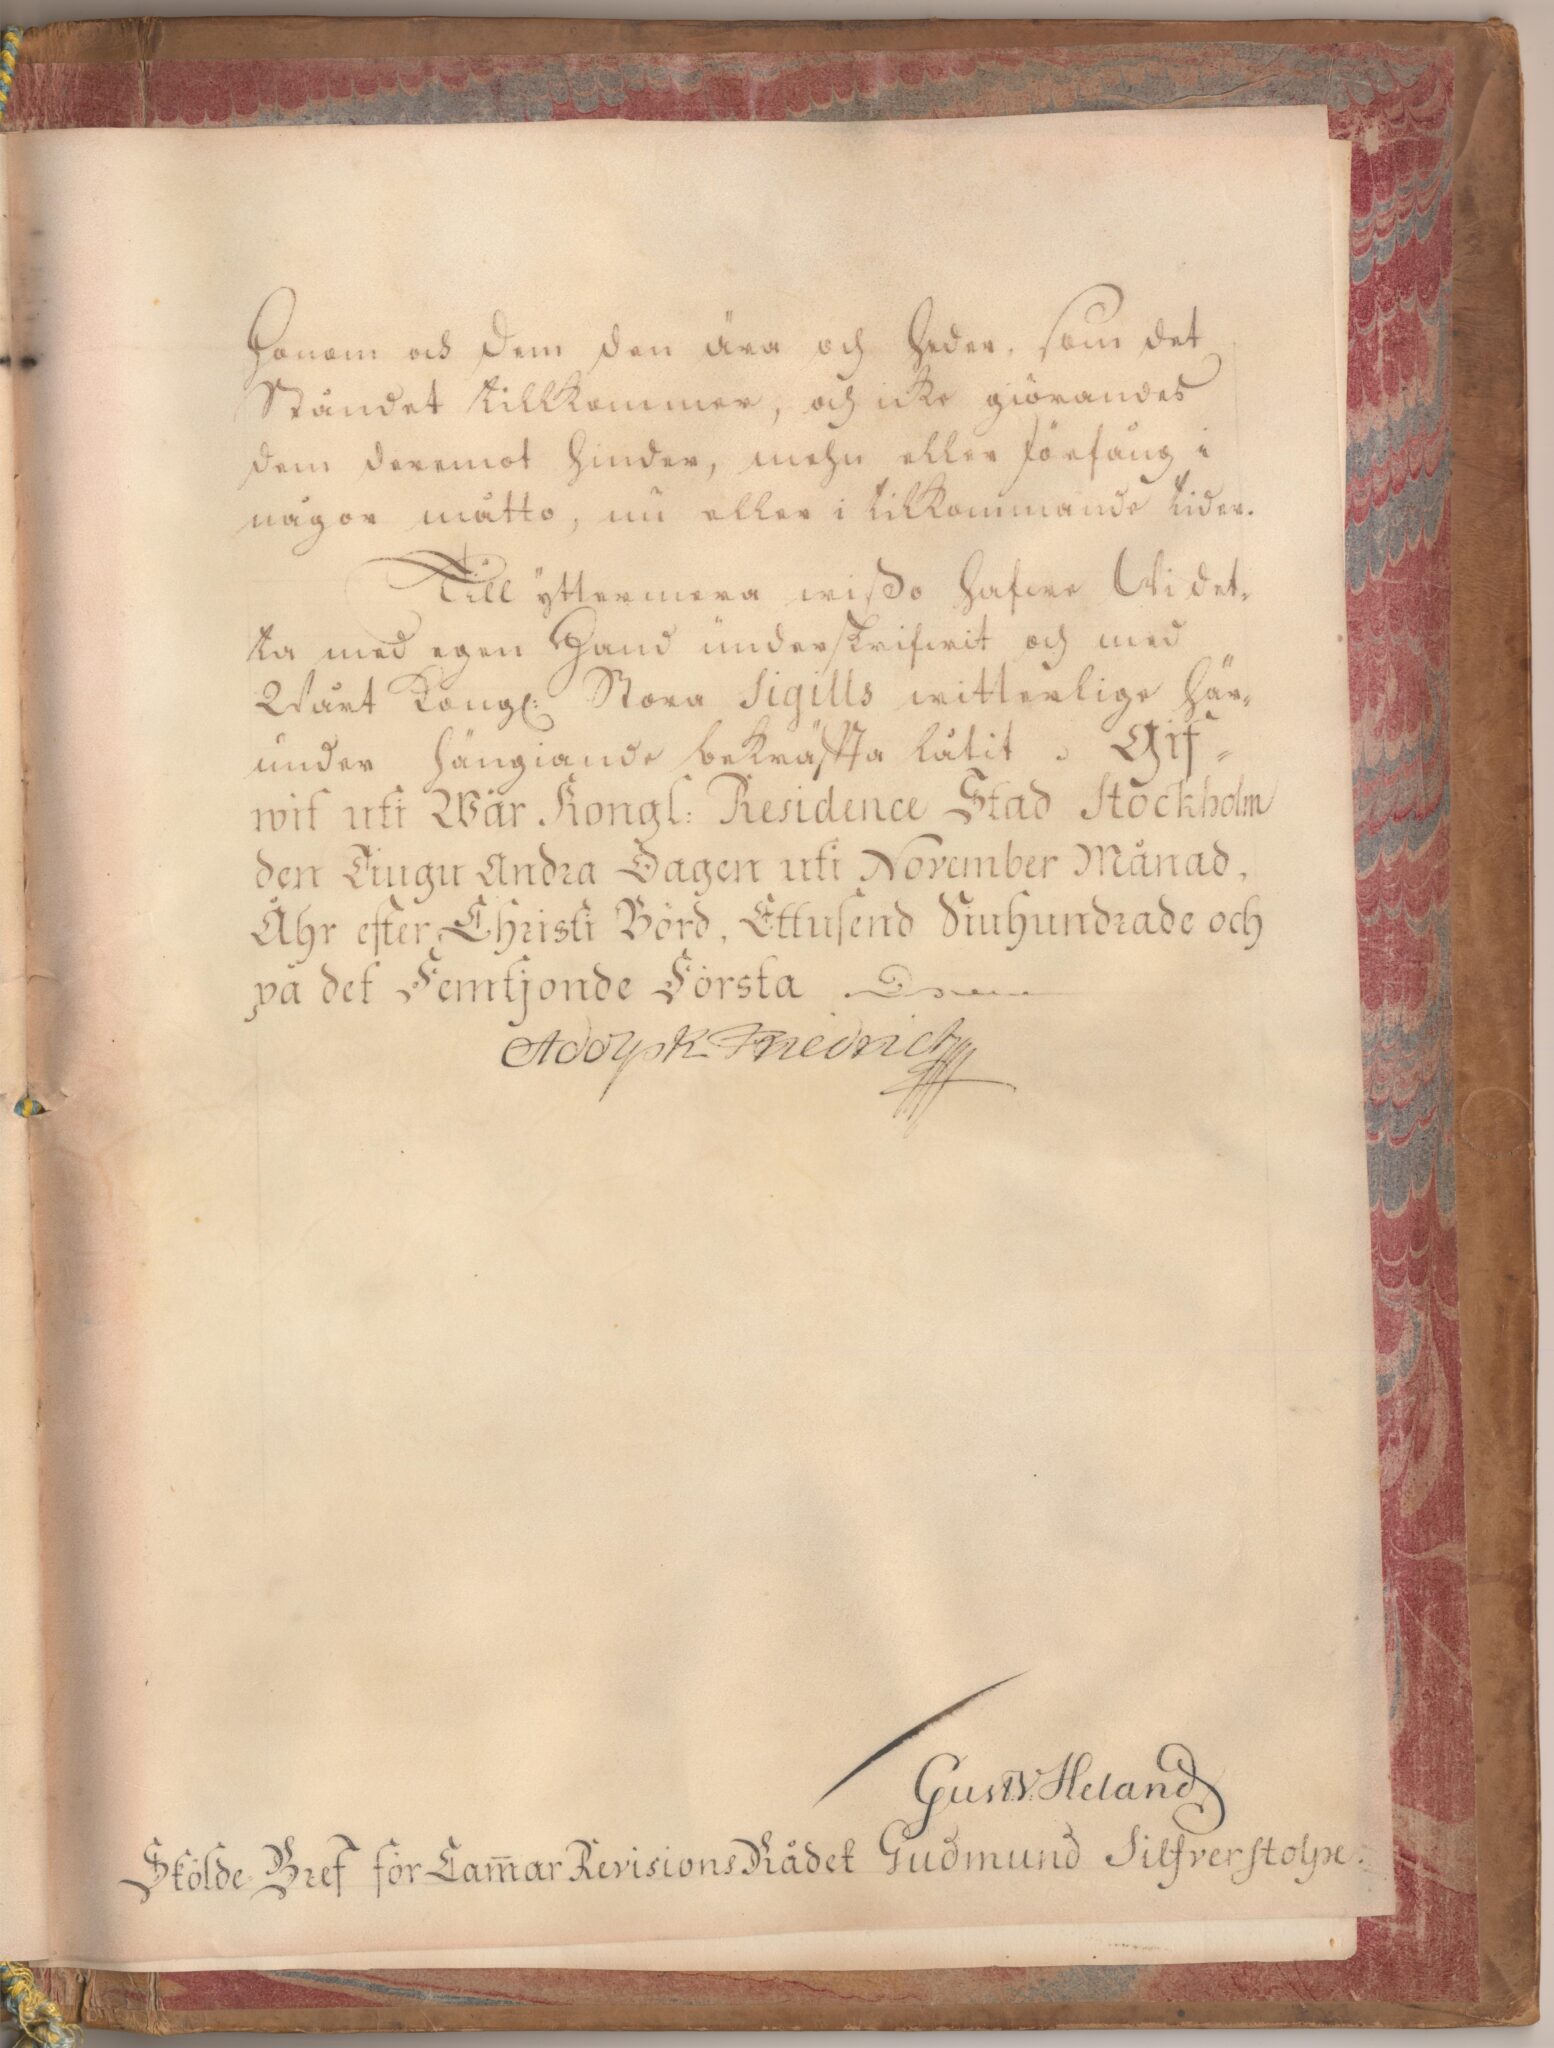 Honom och Dem den ära och heder, som det
Ståndet tillkommer, och icke giörandes
dem deremot hinder, mehn eller förfång i
någor måtto, nu eller i tillkommande tider.
Till yttermera wißo hafwe Wi det-
ta med egen Hand underskrifwit och med
Wårt Kongl: Stora Sigills witterlige här-
under hängiande bekräffta låtit. Gif-
wit uti Wår Kongl: Residence Stad Stockholm
den Tiugu Andra Dagen uti November Månad,
Åhr efter Christi Börd, Ettusend Siuhundrade och
på det Femtjonde Första
Adolph Friedrich
Gustv. Heland
Skölde Bref för Cam̅ar RevisionsRådet Gudmund Silfverstolpe.